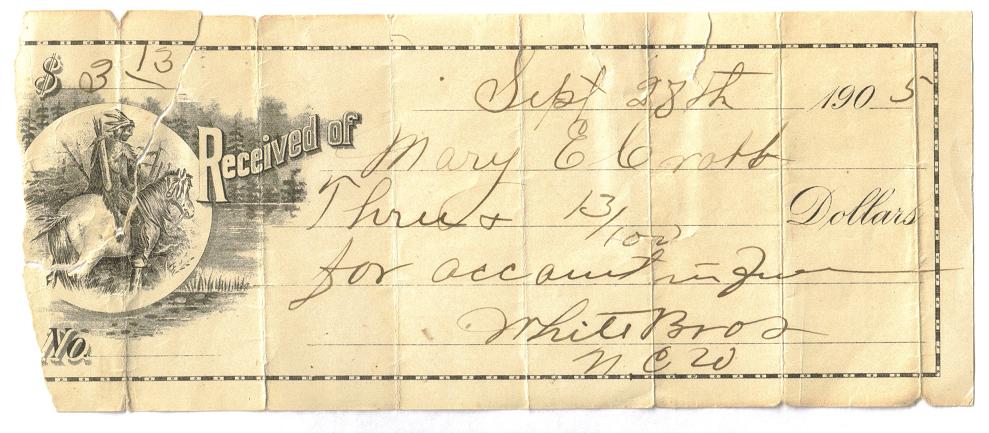 $ 3 13
Sept 28th 1905
Received of Mary E Crabb
Three & 13/100 Dollars
for account in
White Bros
N E W
No.